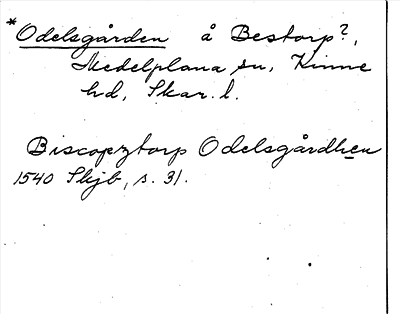 *Odelsgården å Bestorp?,
Medelplana sn, Kinne
hd, Skar. l.
Biscopztorp Odelsgårdhen
1540 Skjb, s. 31.